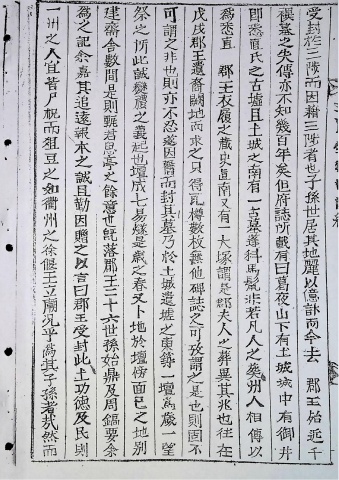 受封於三陟而因籍三陟者也子孫世居其地麗以意計而今去 郡王始近千
禩墓之失傳亦不知幾百年矣但府誌所載有曰葛夜山下有土城城中有御井
即悉直氏之古墟且土城之南有一古墓蓬科馬鬣非若凡人之葬州人相傳以
為悉直 郡王衣履之藏史直南又有一大塚謂是郡夫人之葬異其兆也往在
戊戌郡王遺裔闢地而求之只得瓦樽數枚無他碑誌之可攷謂之是也則固不
可謂之非也則亦不忍遂因舊而封其墓乃於土城遺墟之東築一壇為歲一望
祭之所此誠變禮之義起也壇成七易燧是歲之春又卜地於壇傍面巳之地別
建齋舍數間是則甄君思亭之餘意也既落郡王二十六世孫始鼎及周鎬要余
為之記余嘉其追遠報本之誠且勤因贈之以言曰郡王受封此土功德及民則
一州之人宜皆尸祝而俎豆之如衢州之徐偃王立廟況乎為其子孫者哉然而